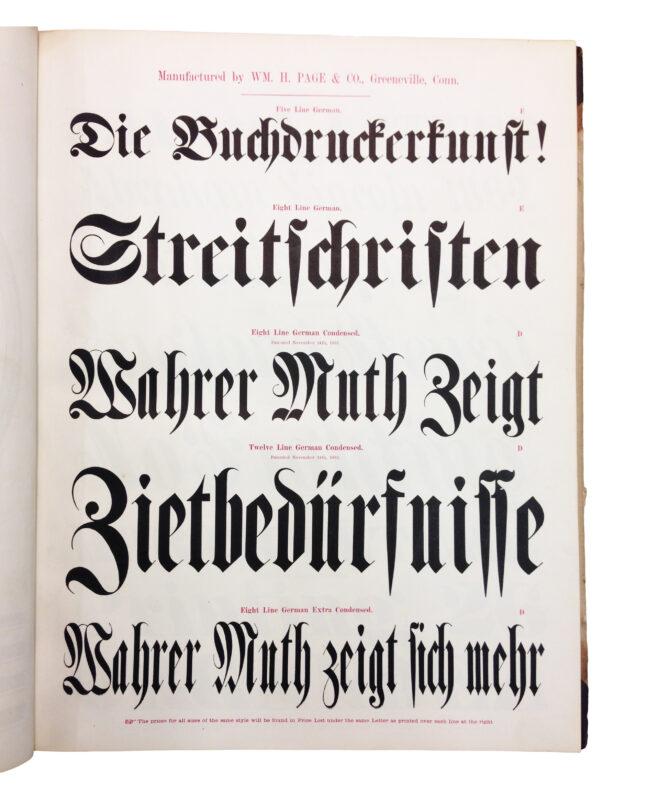 Manufactured by WM. H. PAGE & CO., Greeneville, Conn.
Five Line German. E
Die Buchdruckerkunſt!
Eight Line German. E
Streitſchriften
Eight Line German Condensed. D
Patented November
Wahrer Muth Zeigt
Twelve Line German Condensed. D
Patented November
Zietbedürfniſſe
Eight Line German Extra Condensed. D
Wahrer Muth zeigt ſich mehr
☞ The prices for all sizes of the same style will be found in Price List under the same Letter as printed over each line at the right